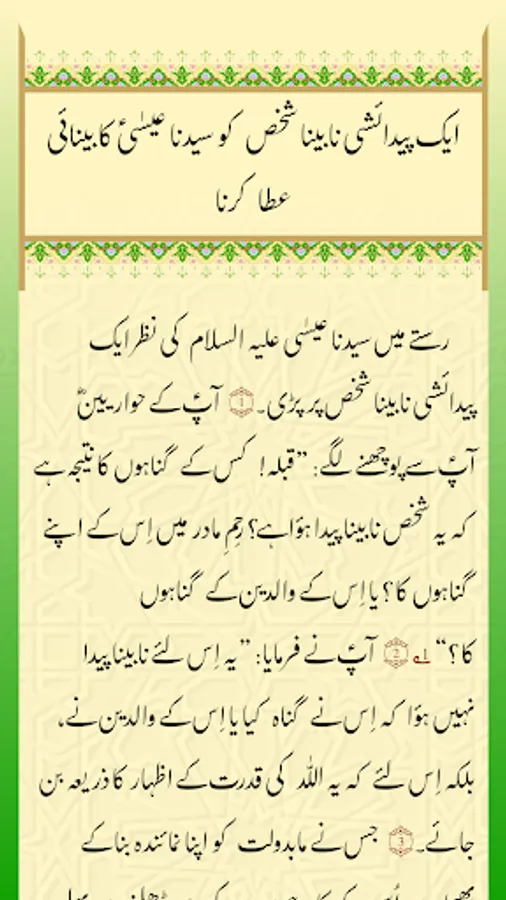 ایک پیدائشی نابینا شخص کو سیدنا عیسٰیؑ کا بینائی
عطا کرنا
رستے میں سیدنا عیسٰی علیہ السلام کی نظر ایک
پیدائشی نابینا شخص پر پڑی۔ 1 آپؑ کے حواریینؓ
آپؑ سے پوچھنے لگے: ”قبلہ! کس کے گناہوں کا نتیجہ ہے
کہ یہ شخص نابینا پیدا ہؤا ہے؟ رِحمِ مادر میں اِس کے اپنے
گناہوں کا؟ یا اِس کے والدین کے گناہوں
کا؟“ 2 آپؑ نے فرمایا: ”یہ اِس لئے نابینا پیدا
نہیں ہؤا کہ اِس نے گناہ کیا یا اِس کے والدین نے،
بلکہ اِس لئے کہ یہ اللہ کی قدرت کے اظہار کا ذریعہ بن
جائے۔ 3 جس نے مابدولت کو اپنا نمائندہ بنا کے